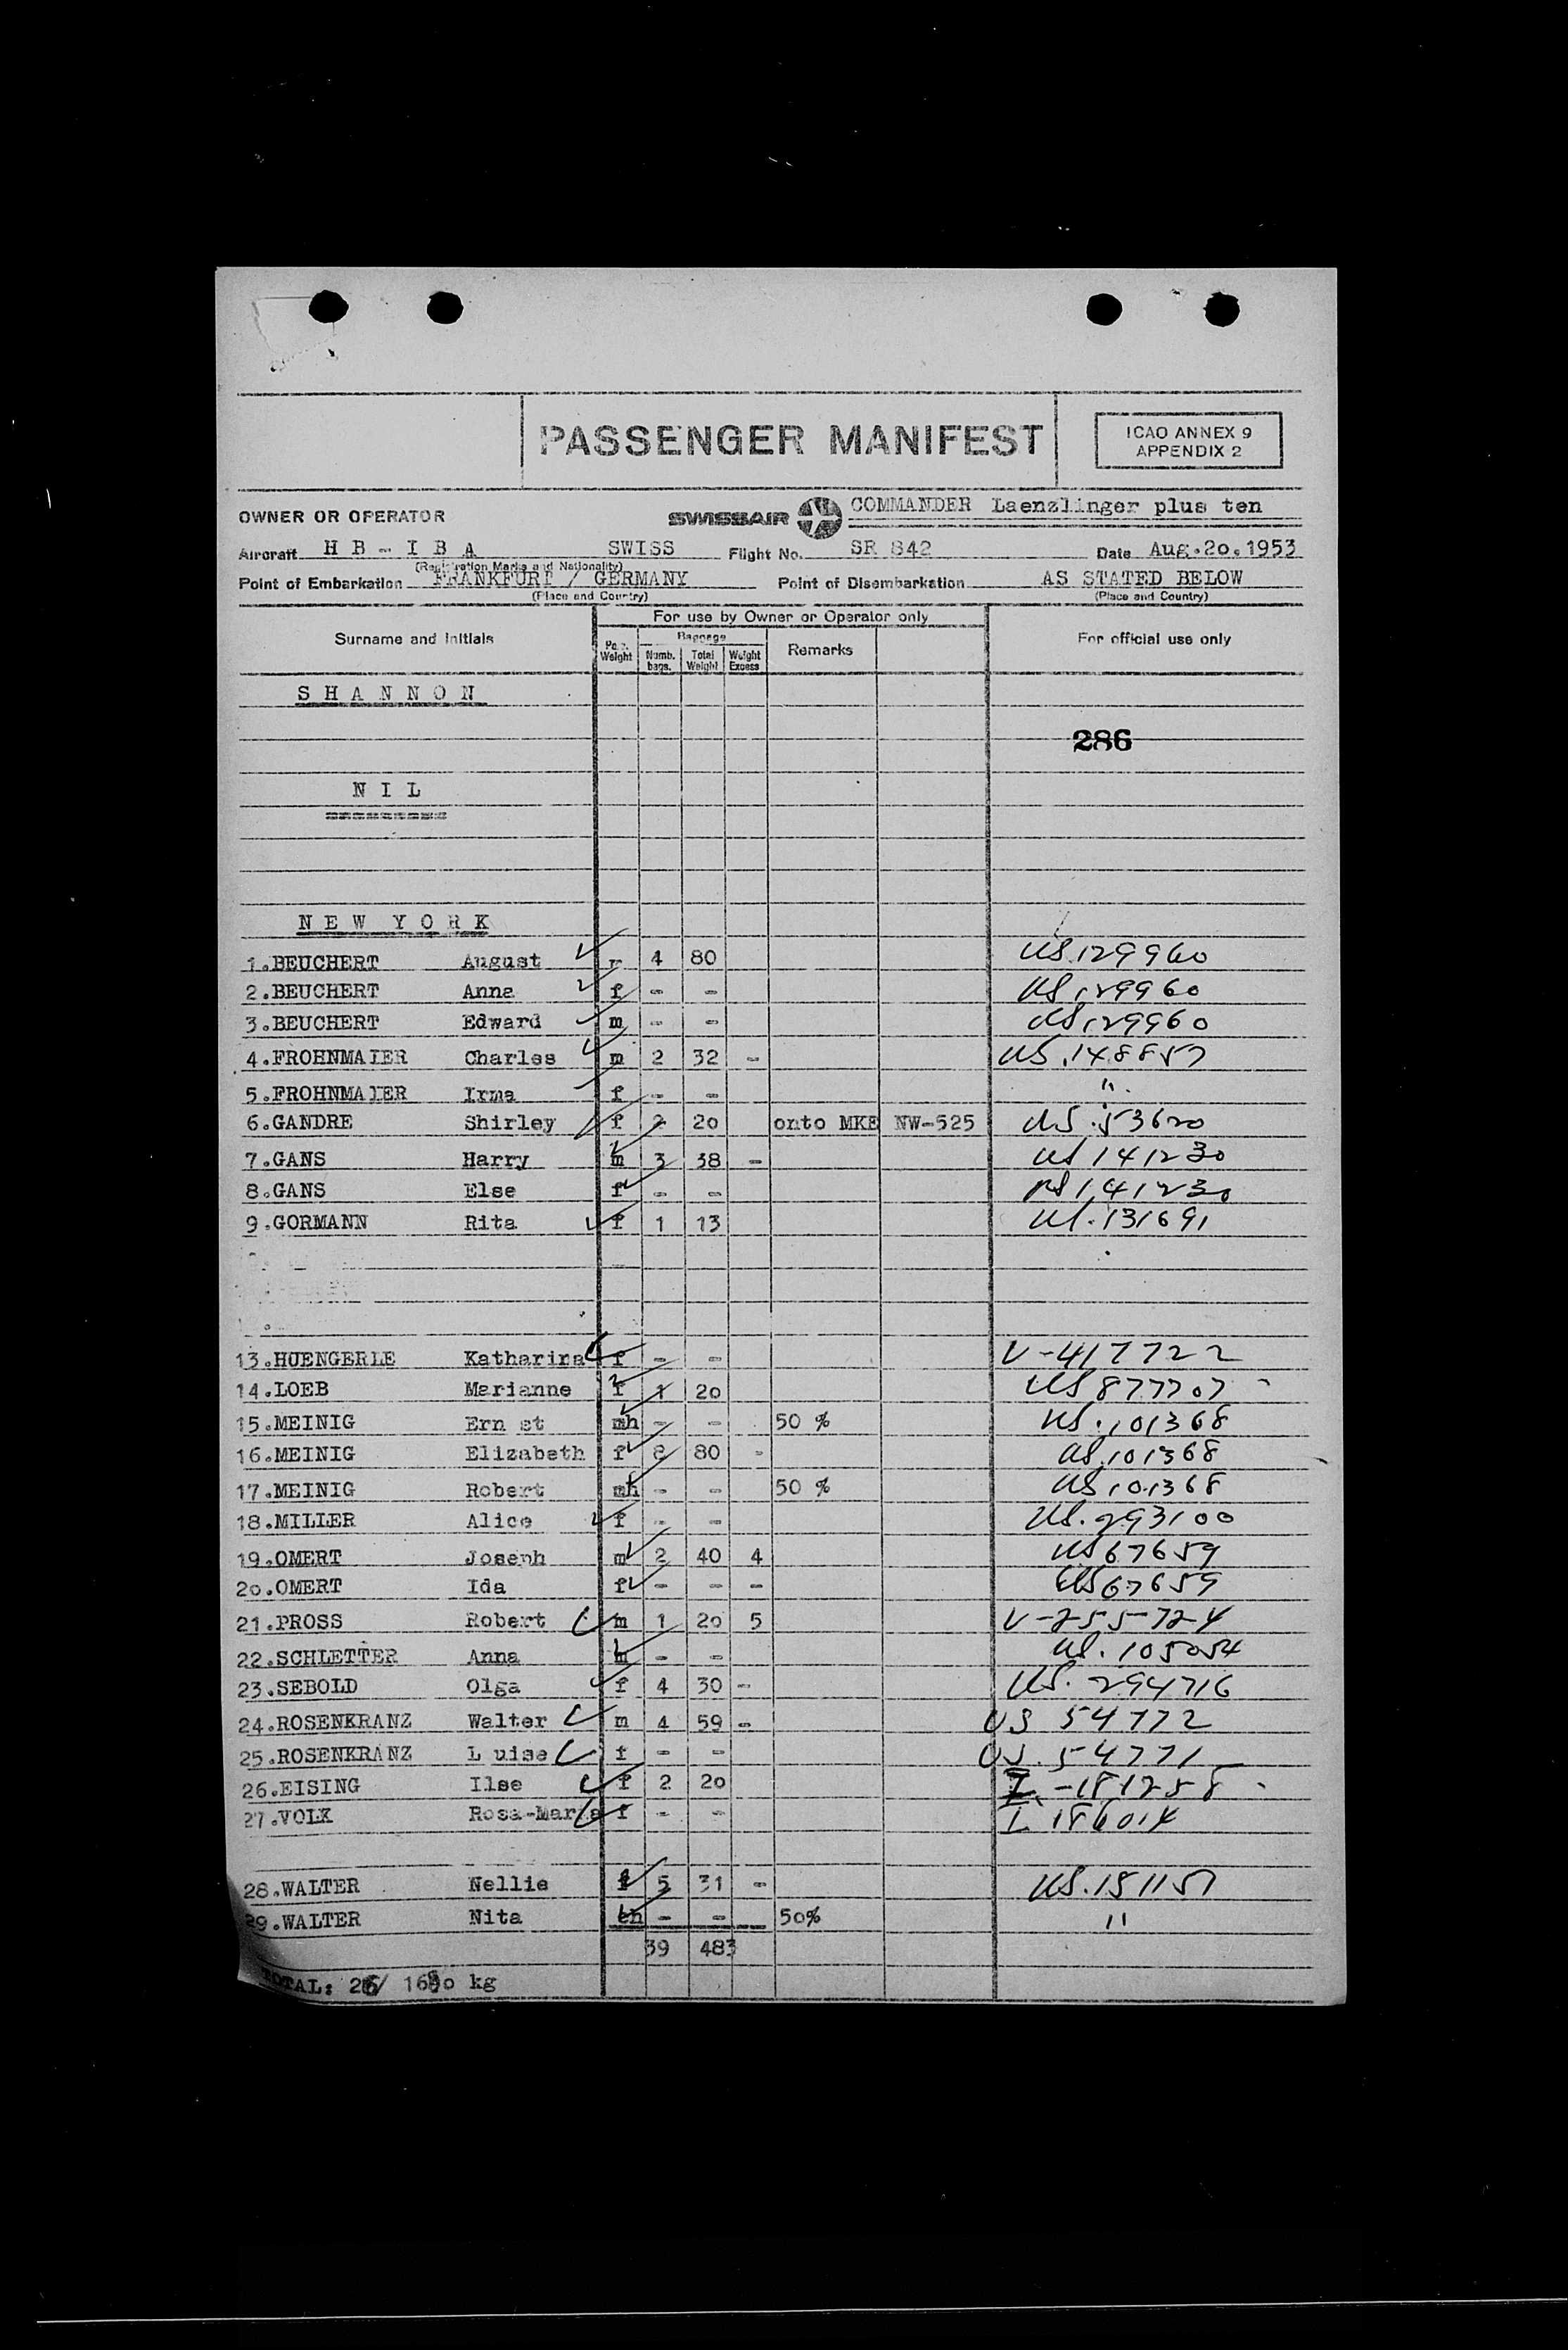 PASSENGER MANIFEST
ICAO ANNEX 9
APPENDIX 2
OWNER OR OPERATOR SWISSAIR COMMANDER Laenzlinger plus ten
Aircraft H B - I B A SWISS Flight No. SR 842 Date Aug.2o.1953
(Registration Marks and Nationality)
Point of Embarkation FRANKFURT / GERMANY Point of Disembarkation AS STATED BELOW
(Place and Country) (Place and Country)
For use by Owner or Operator only
Surname and Initials Weight Baggage Remarks For official use only
Numb. bags. Total Weight Weight Excess
S H A N N O N
286
N I L
=========
N E W Y O R K
1.BEUCHERT August 4 80 US.129960
2.BEUCHERT Anna f - - US.129960
3.BEUCHERT Edward m - - US.129960
4.FROHNMAIER Charles m 2 32 - US.148857
5.FROHNMAIER Irma f - - "
6.GANDRE Shirley f 2 2o onto MKE NW-525 US.53620
7.GANS Harry m 3 38 - US 141230
8.GANS Else f - - US 141230
9.GORMANN Rita f 1 13 US.131691
13.HUENGERLE Katharina f - - V-417722
14.LOEB Marianne f 1 2o US 877707
15.MEINIG Ern st mh - - 50 % US.101368
16.MEINIG Elizabeth f 8 80 - US.101368
17.MEINIG Robert mh - - 50 % US 101368
18.MILLER Alice f - - US.293100
19.OMERT Joseph m 2 40 4 US 67659
2o.OMERT Ida f - - - US 67659
21.PROSS Robert m 1 2o 5 V-255724
22.SCHLETTER Anna - - US.105054
23.SEBOLD Olga f 4 30 - US.294716
24.ROSENKRANZ Walter m 4 59 - US 54772
25.ROSENKRANZ L uise f - - US.54771
26.EISING Ilse f 2 2o I-181258
27.VOLK Rosa-Maria f - - I 186014
28.WALTER Nellie f 5 31 - US.151157
29.WALTER Nita - - 50% "
39 483
TOTAL: kg